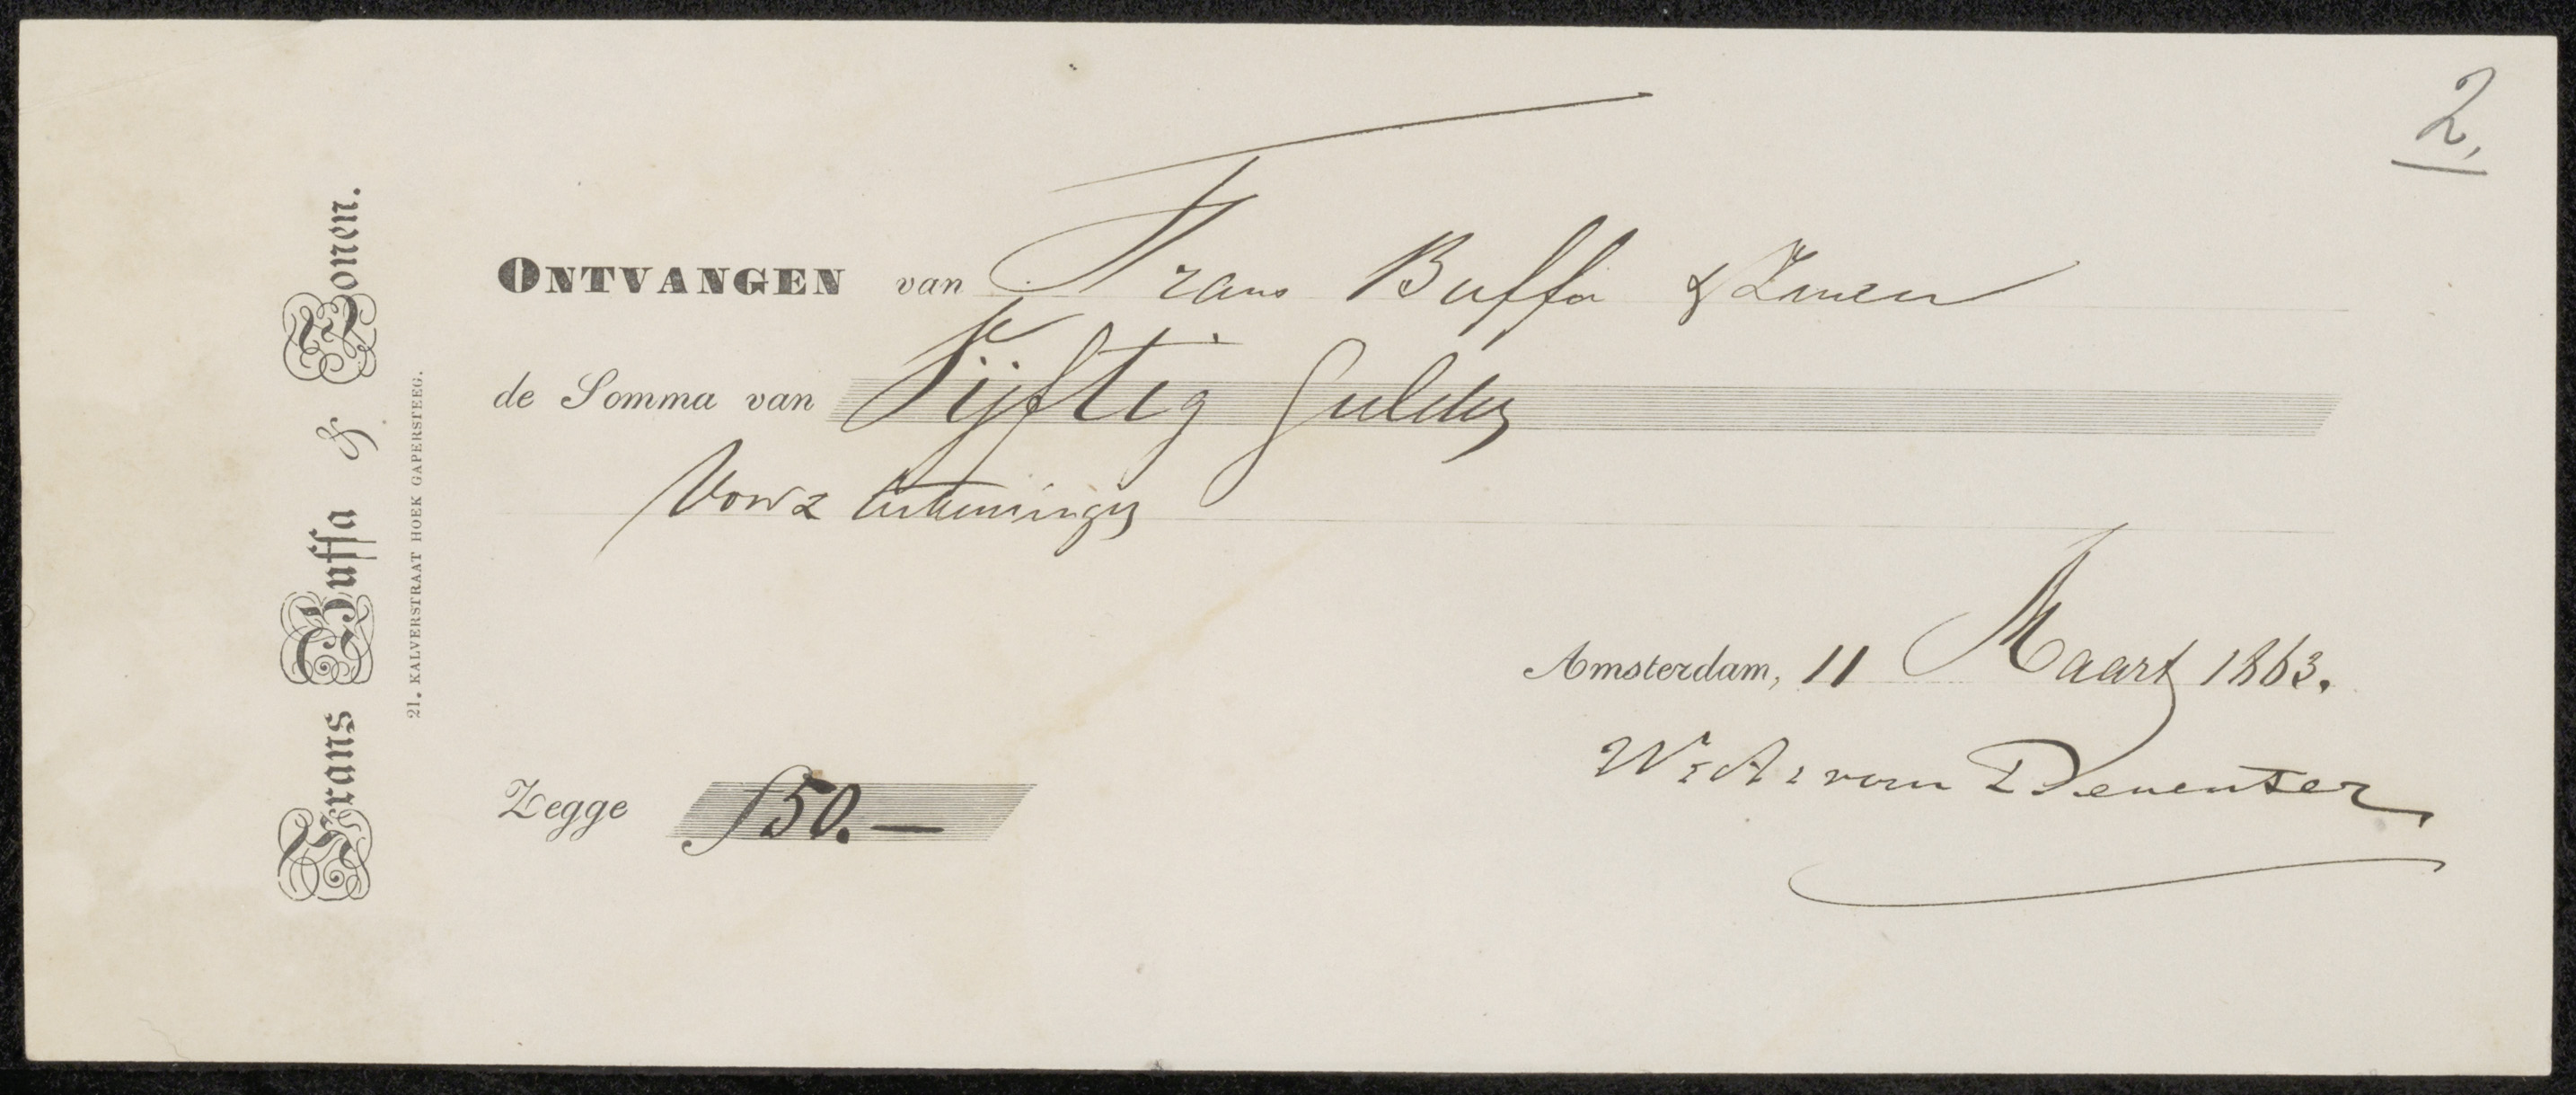 2.
Frans Buffa & Zonen.
21. KALVERSTRAAT HOEK GAPERSTEEG.
ONTVANGEN van Frans Buffa & Zonen
de Somma van Vijftig Gulden
Voor 2 teekeningen
Amsterdam, 11 Maart 1863.
W: A: van Deventer
Zegge ƒ50.—